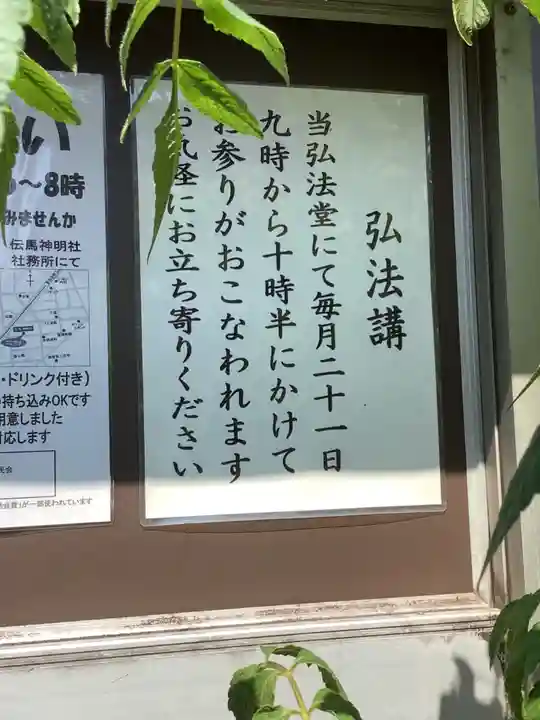 弘法講
当弘法堂にて毎月二十一日
九時から十時半にかけて
お参りがおこなわれます
お気軽にお立ち寄りください
い
～8時
みませんか
伝馬神明社
社務所にて
・ドリンク付き）
持ち込みOKです
用意しました
対応します
民会
が一部使われています